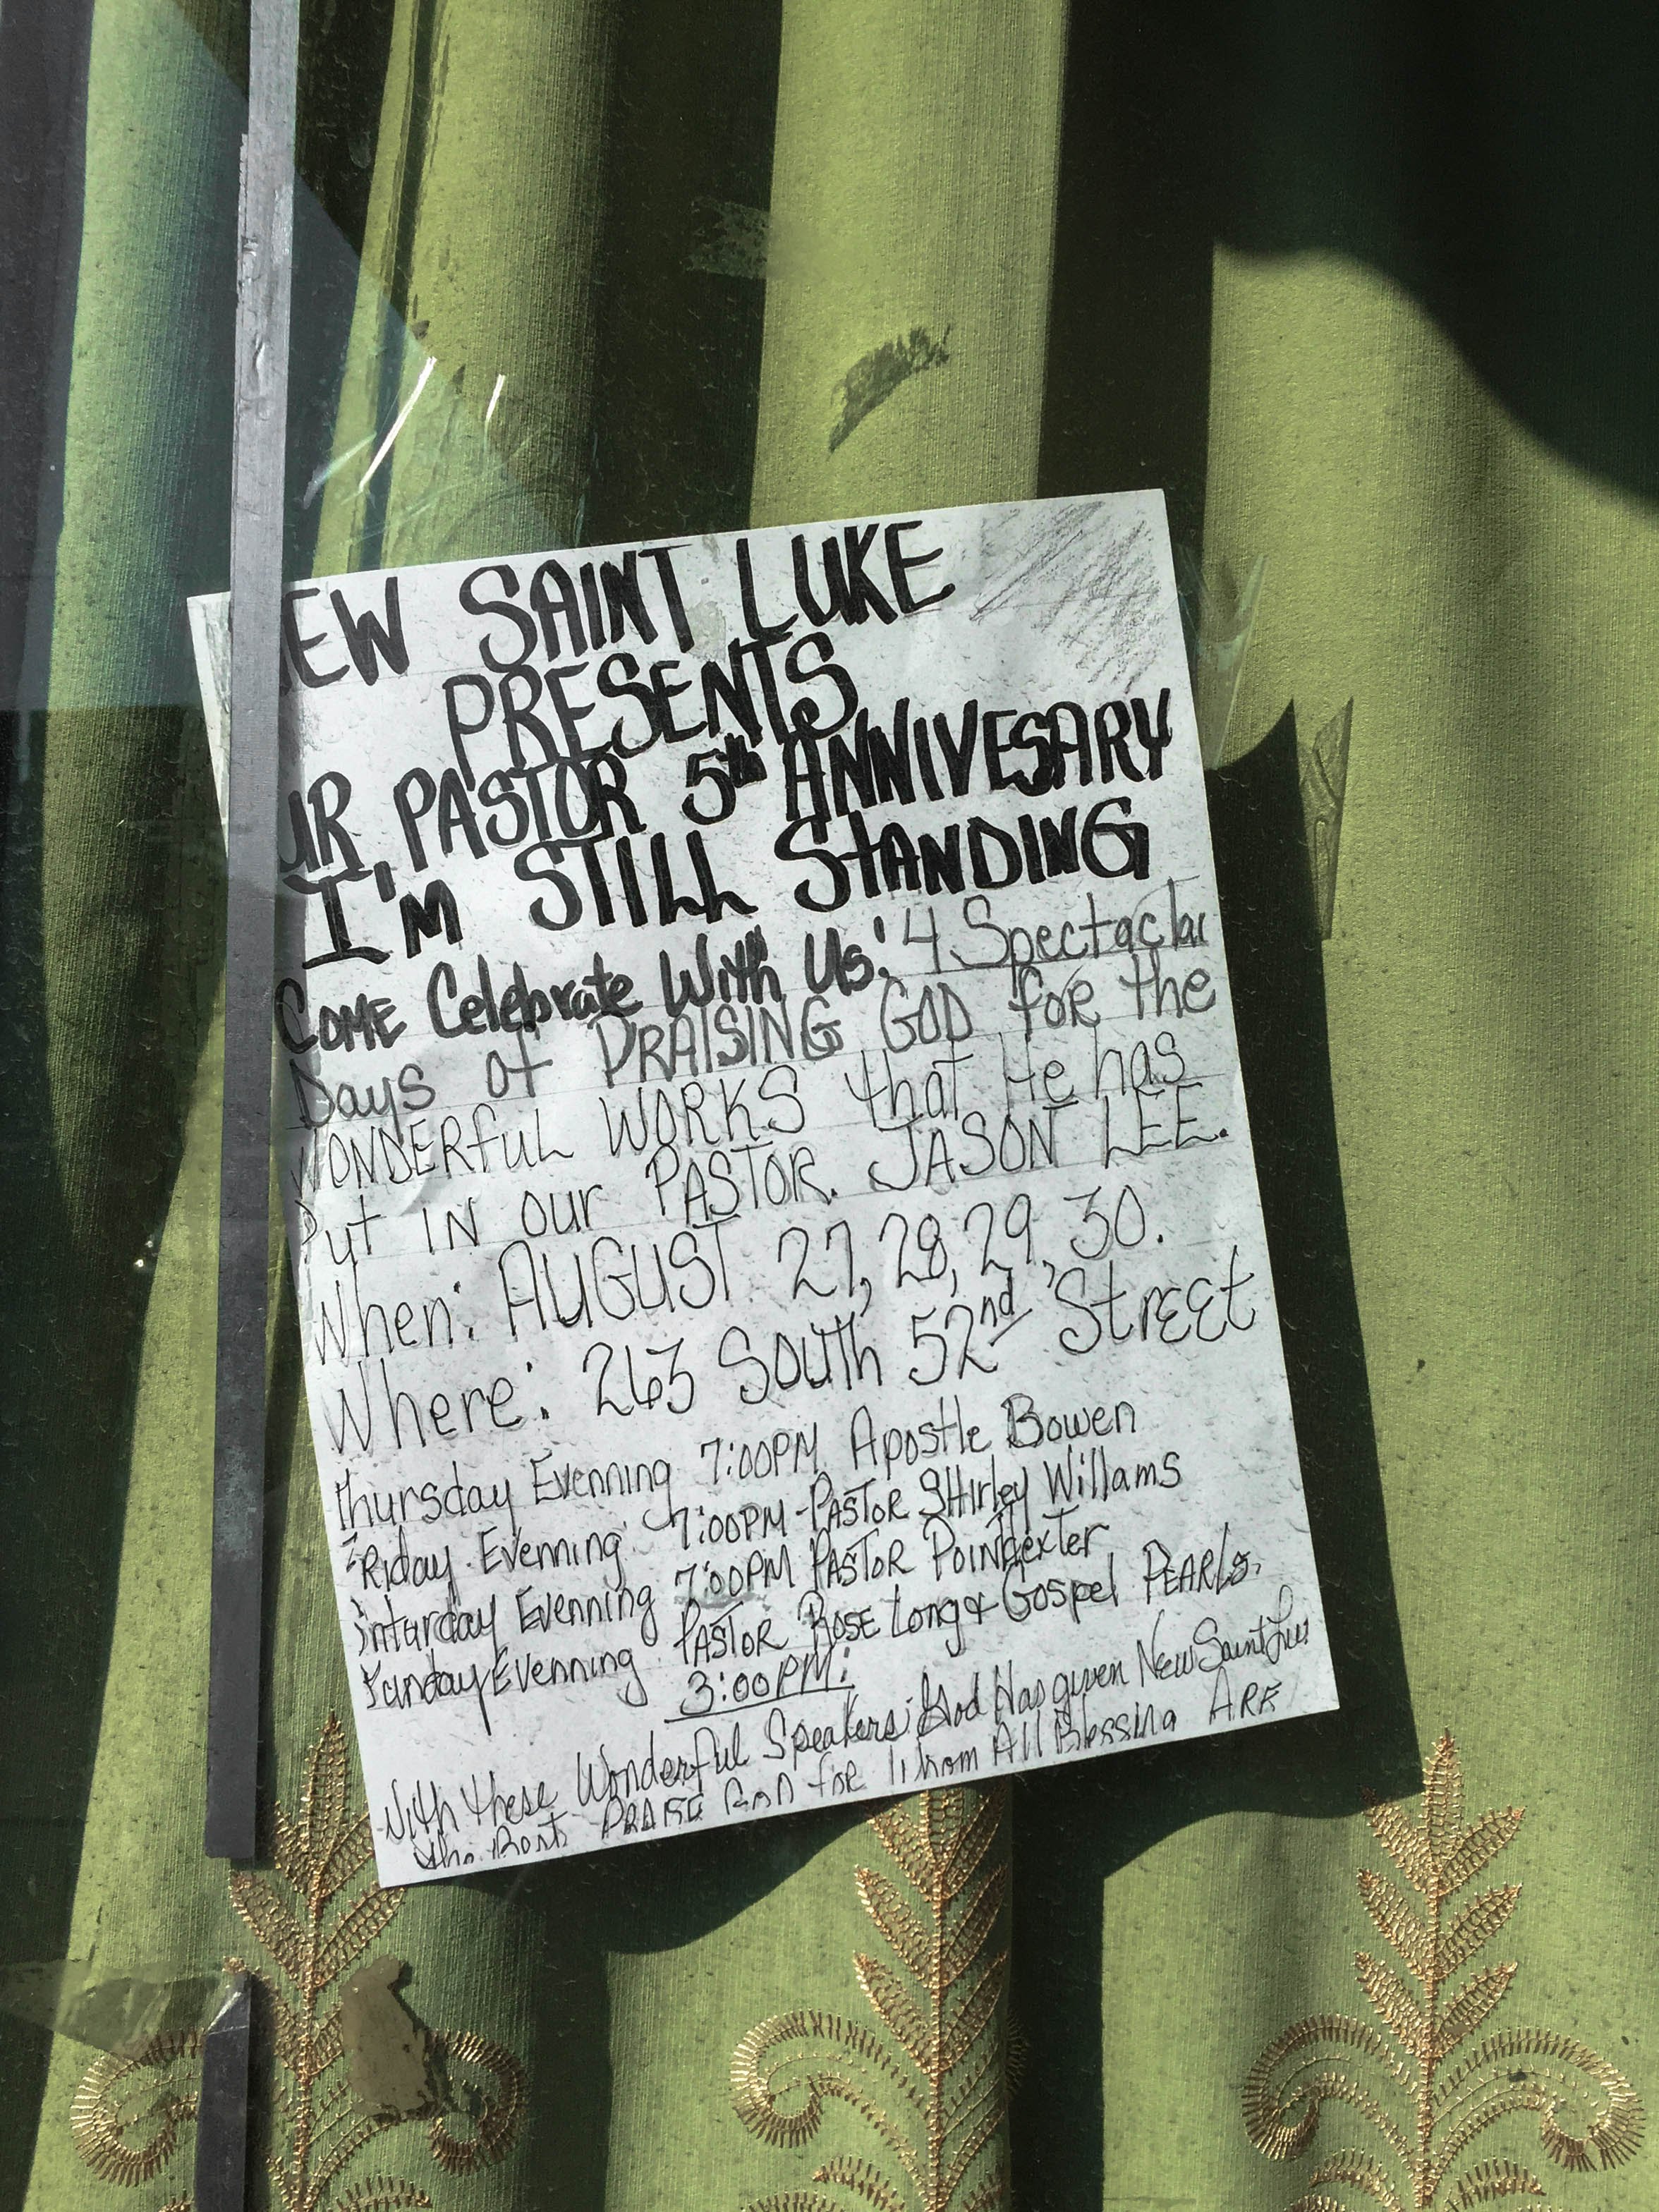 NEW SAINT LUKE
PRESENTS
OUR, PASTOR 5th ANNIVESARY
I'M STILL STANDING
COME Celebrate With Us! 4 Spectaclar
Days of PRAISING GOD for the
WONDERfuL WORKS that He has
Put IN our PASTOR. JASON LEE.
When: AUGUST 27, 28, 29, 30.
Where: 263 South 52nd StrEEt
thursday Evenning 7:00PM Apostle Bowen
FRiday. Evenning: 7:00PM-PASTOR SHirley Willams
Sinturday Evenning 7:00PM PASTOR POINDexter
Sunday Evenning PASTOR ROSE Long & Gospel PEARLs.
3:00PM:
With these Wonderful Speakers; God Has given New Saint
the Best PRAISE GOD for Whom All Blessing ARE